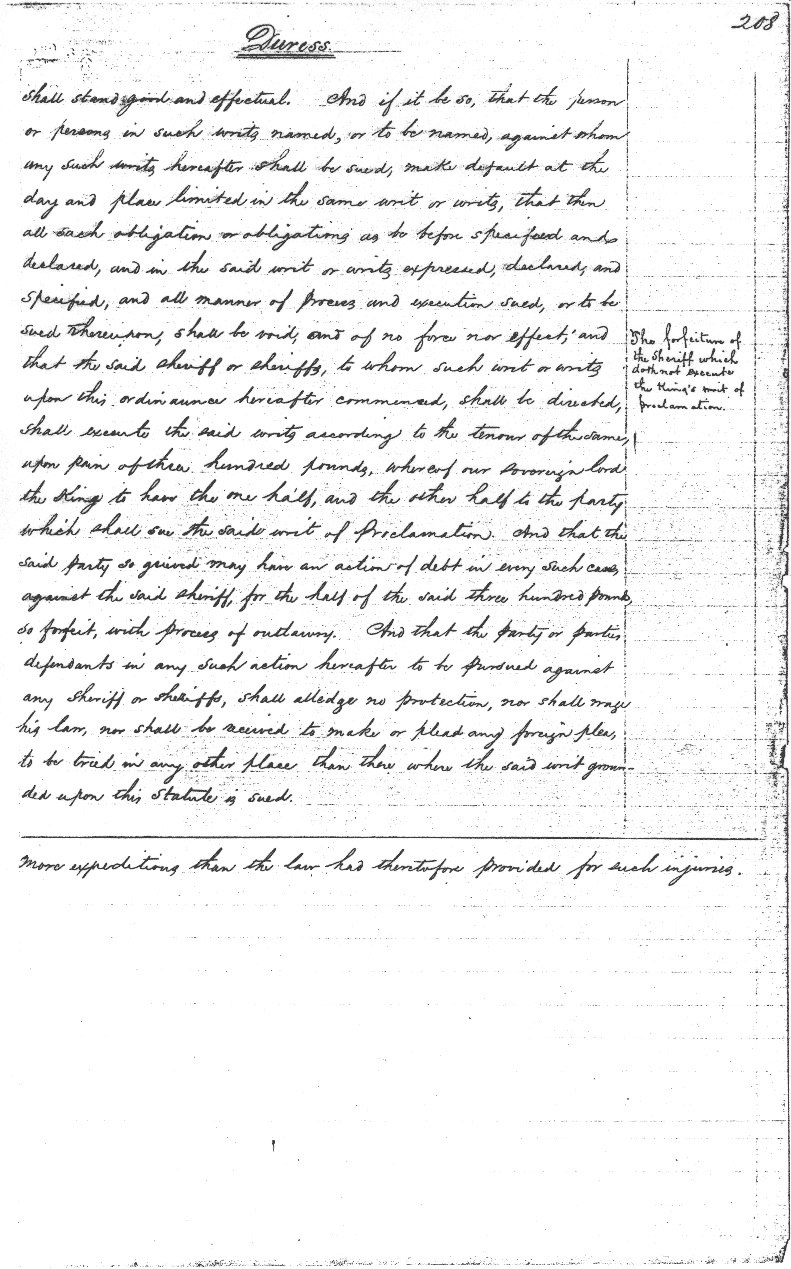 208
Duress.
shall stand good and effectual. And if it be so, that the person
or persons in such writs named, or to be named, against whom
any such writs hereafter shall be sued, make default at the
day and place limited in the same writ or writs, that then
all such obligation or obligations as be before specified and
declared, and in the said writ or writs expressed, declared, and
specified, and all manner of process and execution sued, or to be
sued thereupon, shall be void, and of no force nor effect; and
that the said sheriff or sheriffs, to whom such writ or writs
upon this ordinaunce hereafter commenced, shall be directed,
shall execute the said writs according to the tenour of the same,
upon pain of three hundred pounds, whereof our sovereign lord
the King to have the one half, and the other half to the party
which shall sue the said writ of Proclamation. And that the
said party so grieved may have an action of debt in every such case,
against the said sheriff, for the half of the said three hundred pounds
so forfeit, with process of outlawry. And that the party or parties
defendants in any such action hereafter to be pursued against
any sheriff or sheriffs, shall alledge no protection, nor shall wage
his law, nor shall be received to make or plead any foreign plea,
to be tried in any other place than there where the said writ groun-
ded upon this Statute is sued.
The forfeiture of
the Sheriff which
doth not execute
the King's writ of
proclamation.
more expeditious than the law had theretofore provided for such injuries.